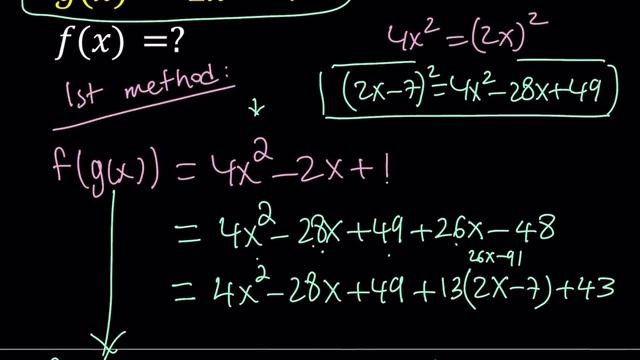 f(x) = ?
4x² = (2x)²
1st method:
(2x-7)² = 4x² - 28x + 49
f(g(x)) = 4x² - 2x + 1
= 4x² - 28x + 49 + 26x - 48
26x-91
= 4x² - 28x + 49 + 13(2x-7) + 43